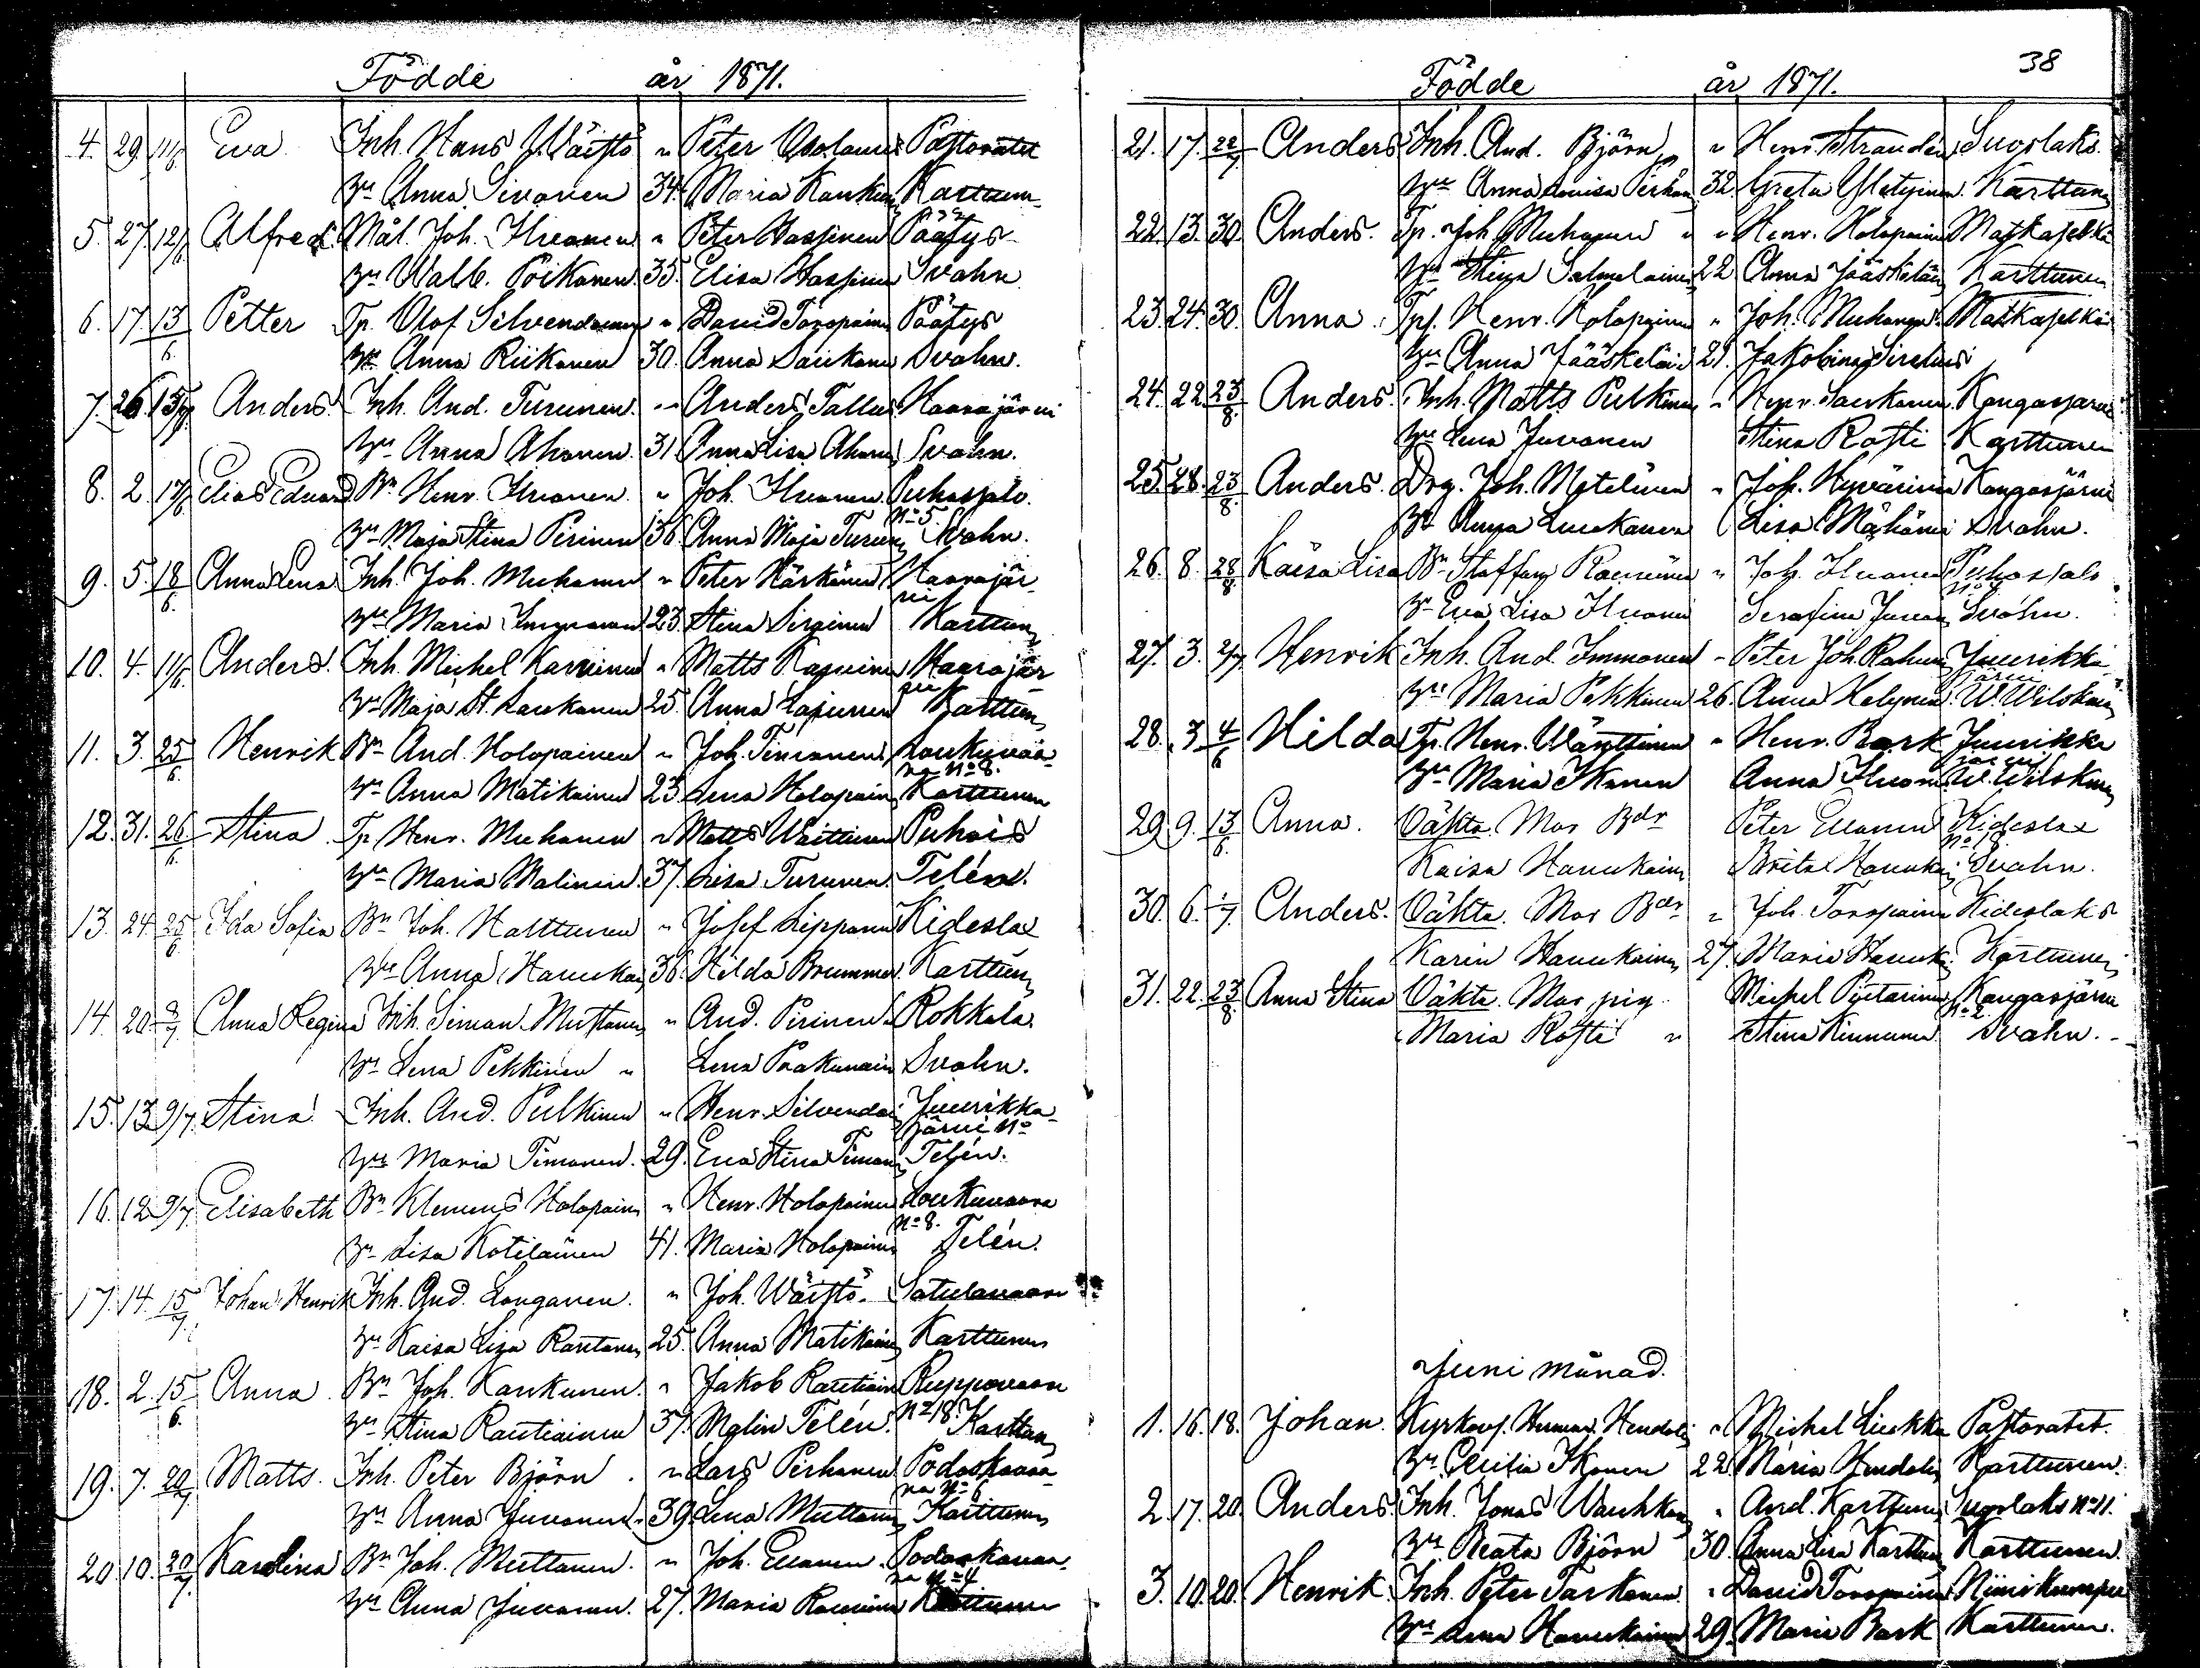 Födde år 1871.
4. 29. 11/6 Eva Inh. Hans Wäistö " Peter Pastoratet
Hu Anna Sivonen 34. Maria Karttunen
5. 27 12/6 Alfred. Måt. Joh. Ikonen " Peter Hassinen Päätys
Hu Walb. Poikonen 35. Elisa Hassinen Svahn
6. 17 13/6 Petter Tp. Olof Silvendoinen " David Toropainen Päätys
Hu Anna Riikonen 30. Anna Saukonen Svahn.
7. 26 Anders. Inh. And. Turunen. " Anders Tallus Haarajärvi
Hu Anna Ahonen. 31 Anna Lisa Ahonen Svahn.
8. 2 17/6 Elias Eduard Bn Henr. Ikonen " Joh. Ikonen Puhossalo
No 5
Hu Maja Stina Pirinen 36 Anna Maja Turunen Svahn.
9. 5. 18/6. Anna Lena Inh. Joh. Muhonen " Peter Härkönen Haarajär-
vi
Hu Maria 23 Stina Sirginen Karttunen
10. 4. 11/6 Anders. Inh. Michel Karvinen " Matts Haarajär
vi
Hu Maja St. Saukonen 25. Anna Karttunen
11. 3. 25/6. Henrik Bn And. Holopainen " Joh. Timonen Loukuvaa-
ra No 8.
Hu Anna Matikainen 23 Lena Holopainen Karttunen
12. 31. 26/6. Stina Tp. Henr. Muhonen " Matts Waittinen Puhois
Hu Maria Malinen. 37. Lisa Turunen. Telén.
13. 24. 25/6 Ida Sofia Bn Joh. Halttunen " Josef Lipponen Kideslax
Hu Anna Haukka 36. Hilda Brummer. Karttunen
14. 20. Anna Regina Inh. Simon Muttonen " And. Pirinen Rokkala.
Hu Lena Pekkinen " Lena Svahn.
15. 13. 9/7. Stina Inh. And. Pulkinen " Henr. Silvendoi Juurikka-
järvi No
Hu Maria Timonen. 29. Eva Stina Timonen Telén.
16. 12. 9/7 Elisabeth Bn Klemens Holopainen " Henr. Holopainen Loukuvaara
No 8.
Hu Lisa Kotilainen 41. Maria Holopainen Telén.
17. 14. 15/7. Johan Henrik Inh. And. Longanen. " Joh. Wäistö Satulavaara
Hu Kaisa Lisa Rautanen 25. Anna Matikainen Karttunen
18. 2. 15/6. Anna Bn Joh. Kaukunen. " Jakob Rautiainen Ruppovaara
No 18.
Hu Stina Rautiainen 37. Malin Telén. Karttunen
19. 7. 20/7 Matts. Inh. Peter Björn " Lars Perhonen Podoskavaa-
ra No 6
Hu Anna Juvonen. 39. Lena Muttonen Karttunen
20. 10. 20/7. Karolina Bn Joh. Muttonen. " Joh. Ellonen. Podoskavaa-
ra No 4
Hu Anna Juvonen. 27. Maria Karttunen
38
Födde år 1871.
21. 17. 22/7 Anders Inh. And. Björn " Henr. Strandén Suorlaks.
Hu Anna Lovisa Perhonen 32. Greta Karttunen
22. 13. 30. Anders. Tp. Joh. Muhonen " " Henr. Holopainen Matkaselkä
Hu Stina Salmelainen 22 Anna Jääskeläinen Karttunen
23. 24. 30. Anna Tps. Henr. Holopainen " Joh. Muhonen Matkaselkä
Hu Anna Jääskeläinen 21. Jakobina Sirelius
24. 22. 23/8. Anders. Inh. Matts Pulkinen " Henr. Saukonen Kangasjärvi
Hu Lena Juvonen Stina Rosti Karttunen
25. 28. 23/8. Anders. Drg. Joh. Matilainen " Joh. Hyvärinen Kangasjärvi
Hu Anna Luukkanen Lisa Svahn.
26. 8. 28/8. Kaisa Lisa Bn Staffan " Joh. Ikonen Puhossalo
Hu Eva Lisa Ikonen Serafina Juvonen Svahn.
27. 3. 2/7. Henrik Inh. And. Immonen " Peter Joh. Rahunen Juurikka
järvi
Hu Maria Pekkinen 26. Anna W. Wilskman
28. 3. 4/6 Hilda Tp. Henr. Wänttinen " Henr. Bark Juurikka
järvi
Hu Maria Ikonen Anna Ikonen W. Wilskman
29. 9. 13/6. Anna. Oäkta. Mor Bdr Peter Ellonen Kideslax
Kaisa Haukkainen Brita Haukka Svahn.
30. 6. 1/7. Anders. Oäkta. Mor Bdr " Joh. Toropainen Kideslaks
Karin Haukkainen 27. Maria Haukka. Karttunen
31. 22. 23/8 Anna Stina Oäkta. Mor pig. Michel Pietarinen Kangasjärvi
No 2.
Maria Rosti " Stina Kinnunen Svahn.
Juni månad.
1. 16. 18. Johan. Kyrkovf. Herman Hendolin " Michel Liukko Pastoratet.
Hu Cecilia Ikonen 22 Maria Hendolin Karttunen.
2. 17. 20. Anders. Inh. Jonas Wauhkonen " And. Karttunen Suorlaks No 11.
Hu Beata Björn 30. Anna Lisa Karttunen Karttunen.
3. 10. 20. Henrik Inh. Peter Tarkonen " David Toropainen Niinikumpu
Hu Lena Haukkainen 29. Maria Bark Karttunen.